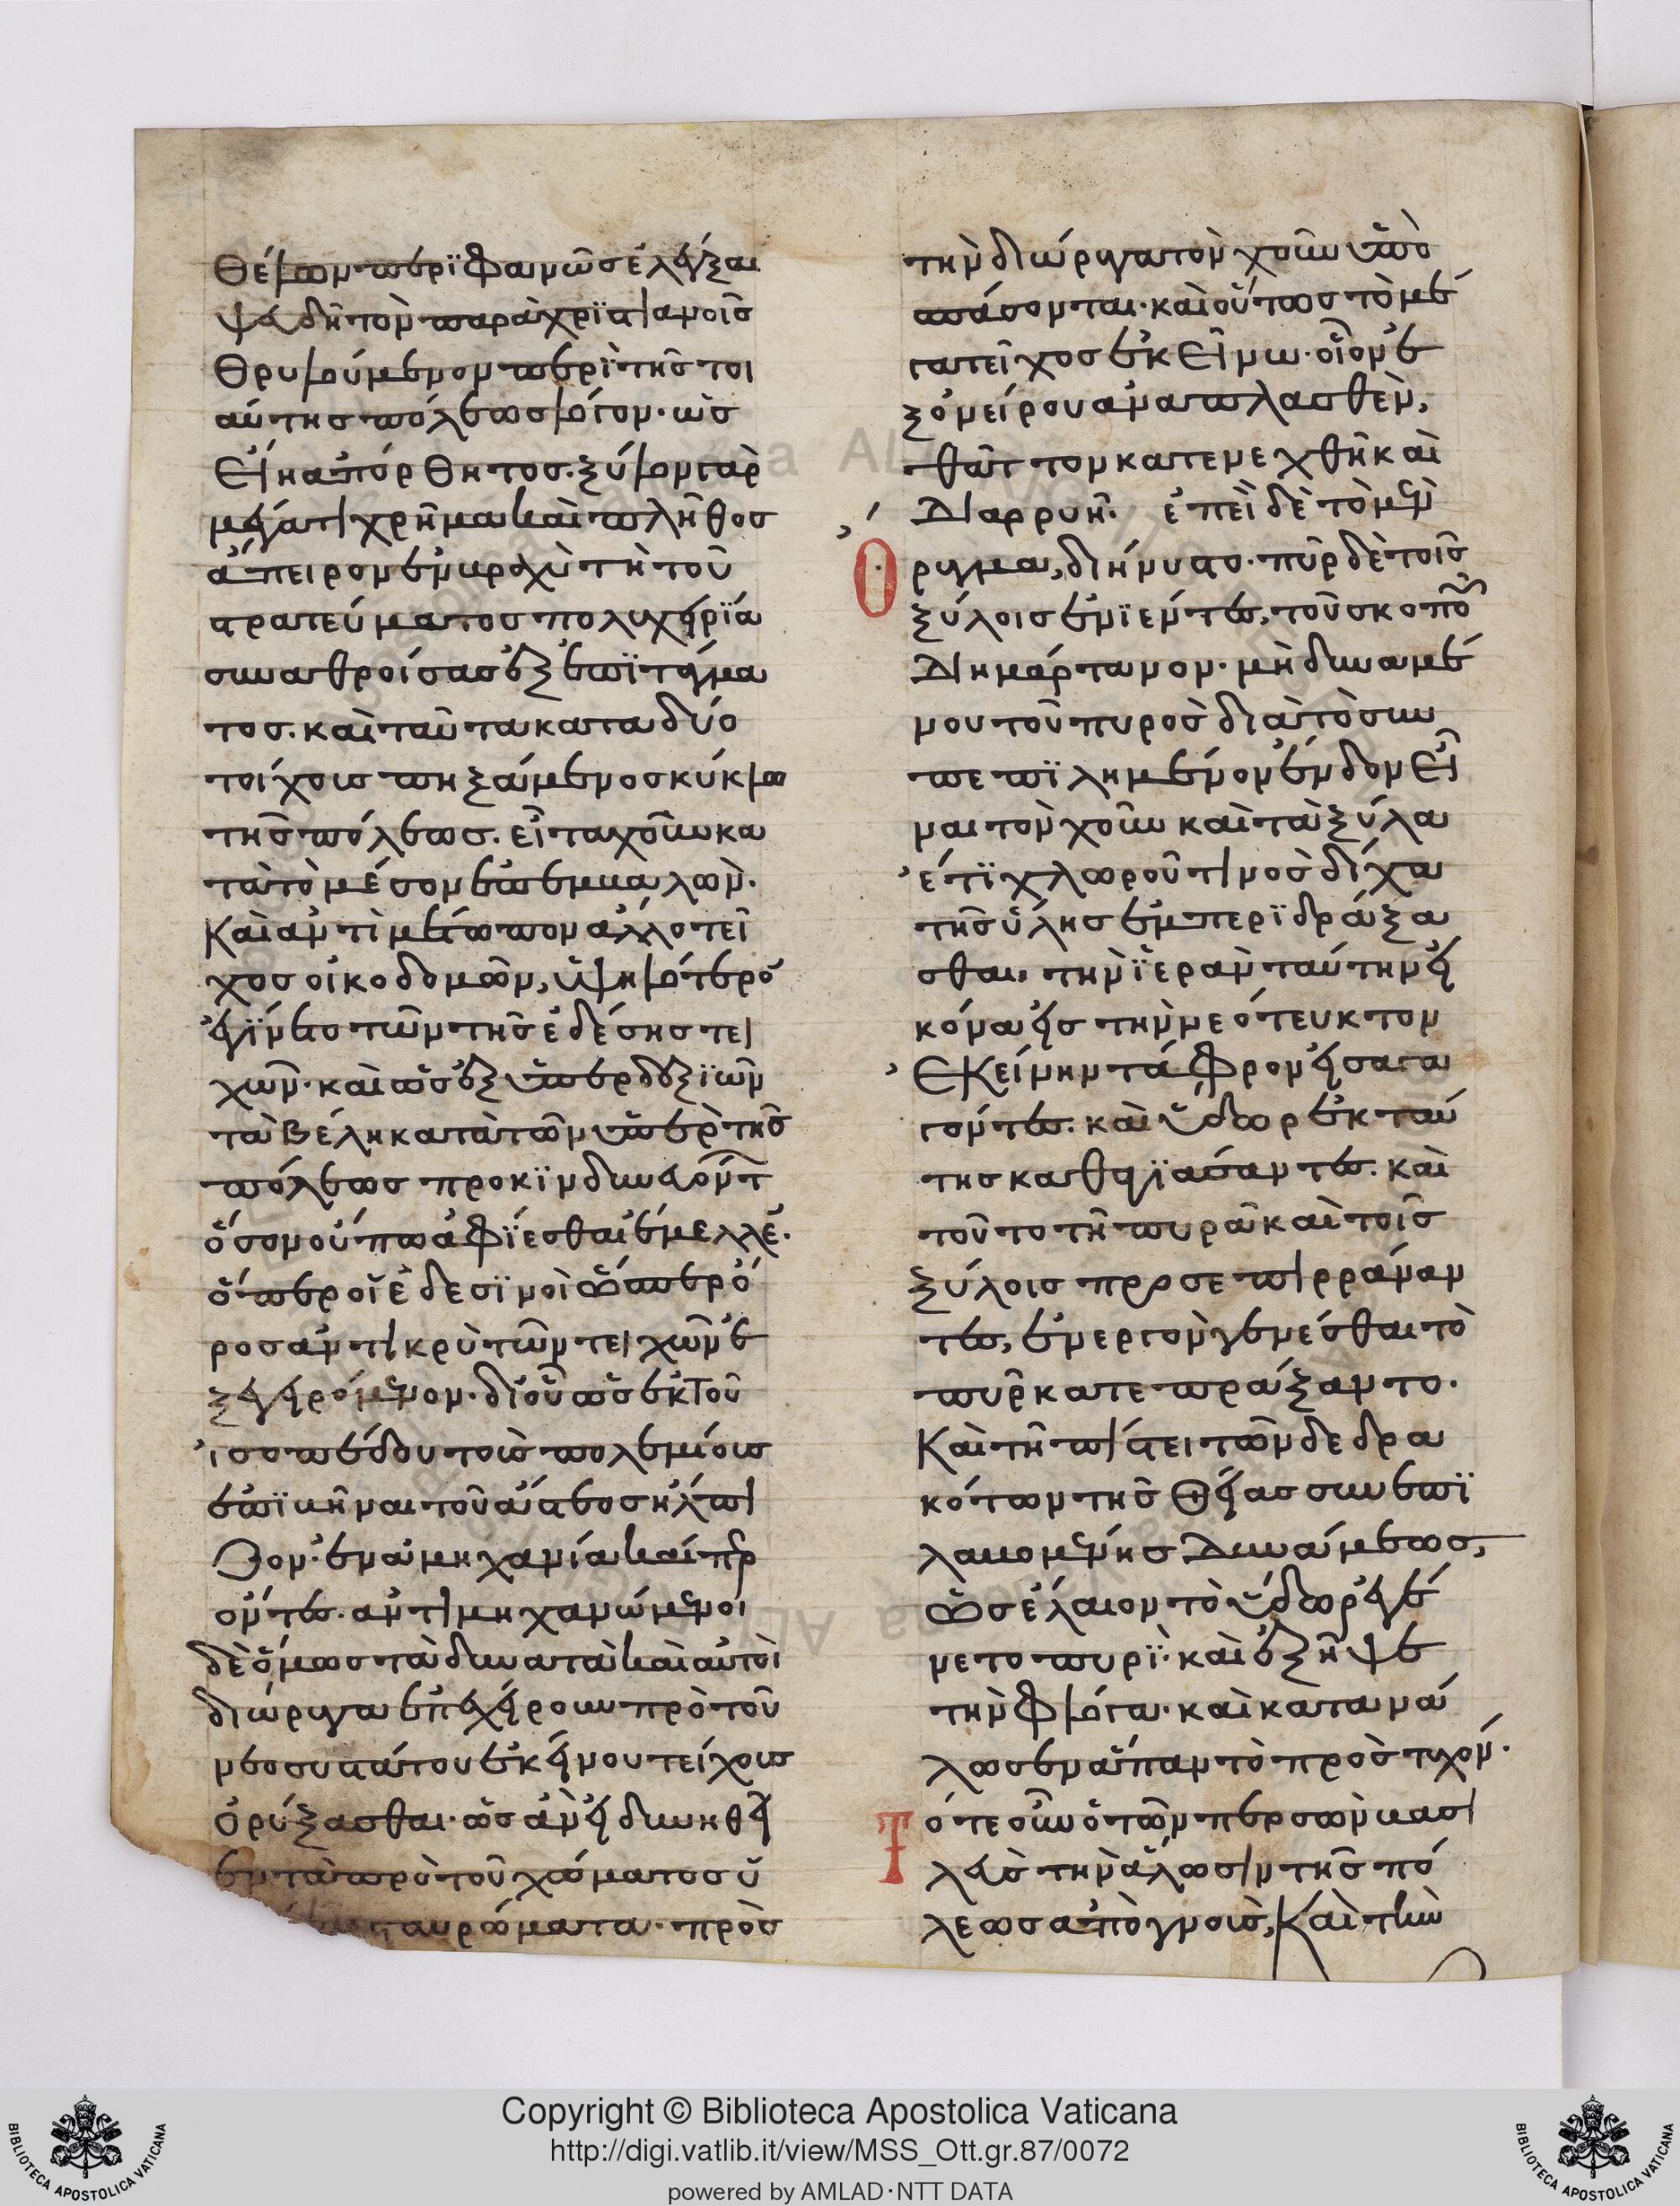 θέλων περὶ φανῶς ἐλέγξαι
ψευδῆ τὸν παρὰ χριστιανοῖς
θρυλούμενον περὶ τῆς τοι
αύτης πόλεως λόγον· ὡς
εἴη ἀπόρθητος. ξύλον γὰρ
μέγα τι χρῆμα καὶ πλῆθος
ἄπειρον ἐν ἀρχῆ τῆ τοῦ
στρατεύματος πολυχειρία
συναθροίσας ἐξ ἐπιτάγμα
τος. καὶ ταῦτα κατὰ δύο
τοίχους πηξάμενος κύκλω
τῆς πόλεως. εἶτα χοῦν κα
τὰ τὸ μέσον ἐπεμβαλών.
Καὶ ἀντιμέτωπον ἄλλο τεῖ
χος οἰκοδομῶν, ὑψηλότερον
ἐγίνετο τῶν τῆς ἐδέσης τει
χῶν· καὶ ὡς ἐξ ὑπερδεξίων
τὰ βέλη κατὰ τῶν ὑπὲρ τῆς
πόλεως προκινδυνευόντ
ὅσον οὔπω ἀφίεσθαι ἔμελλε.
ὅπερ οἱ ἐδεσινοὶ ὥσπερ ὄ
ρος ἀντικρὺ τῶν τειχῶν ἐ
ξεγειρόμενον. δι' οὗ ὡς ἐκ τοῦ
ἰσοπέδου τοὺς πολεμίους
ἐπιβῆναι τοῦ ἄστεος ἤλπι
ζον. ἐν ἀμηχανία καίπερ
ὄντες. ἀντιμηχανώμενοι
δὲ ὅμως τὰ δυνατὰ καὶ αὐτοὶ
διώρυγα ἐπεχείρουν πρὸ τοῦ
νεοσυστάτου ἐκείνου τείχους
ὀρύξασθαι. ὡς ἂν εἰ δυνηθεῖ
εν τὰ πρὸ τοῦ χώματος ὑ
σταυρώματα. πρὸς
τὴν διώρυγα τὸν χοῦν ὑπο
σπάσονται. καὶ οὕτως τὸ μέ
γα τεῖχος ἐκεῖνω. οἷον ἐ
ξ ὀνείρου ἀναπλασθὲν,
θᾶττον κατενεχθῆ καὶ
Διαρρυῆ. ἐπεὶ δὲ τὸ μὲν
Ὄρυγμα, διήνυστο. πῦρ δὲ τοῖς
ξύλοις ἐνιέντες, τοῦ σκοποῦ
Διημάρτανον. μὴ δυναμέ
νου τοῦ πυρὸς διὰ τὸ συμ
πεπιλημένον ἔνδον εἶ
ναι τὸν χοῦν καὶ τὰ ξύλα
ἔτι χλωροῦ τινος δίχα
τῆς ὕλης ἐμπεριδράξα
σθαι, τὴν ἱερὰν ταύτην εἰ
κόνα εἰς τὴν νεότευκτον
Ἐκείνην τάφρον εἰσαγα
γόντες. καὶ ὕδωρ ἐκ ταύ
της καθαγιάσαντες. καὶ
τοῦτο τῆ πυρᾶ καὶ τοῖς
ξύλοις προσεπιρράναν
τες, ἐνεργὸν γενέσθαι τὸ
πῦρ κατεπράξαντο.
Καὶ τῆ πίστει τῶν δεδρα
κότων τῆς Θείας συνεπι
λαβομένης Δυνάμεως,
ὡς ἔλαιον τὸ ὕδωρ ἐγέ
νετο πυρί. καὶ ἐξῆψε
τὴν φλόγα. καὶ κατανά
λωσεν ἅπαν τὸ προστυχόν.
Τότε οὖν ὁ τῶν περσῶν βασι
λεὺς τὴν ἅλωσιν τῆς πό
λεως ἀπογνοὺς, Καὶ τὴν
Copyright © Biblioteca Apostolica Vaticana
http://digi.vatlib.it/view/MSS_Ott.gr.87/0072
powered by AMLAD·NTT DATA
BIBLIOTECA APOSTOLICA VATICANA
BIBLIOTECA APOSTOLICA VATICANA